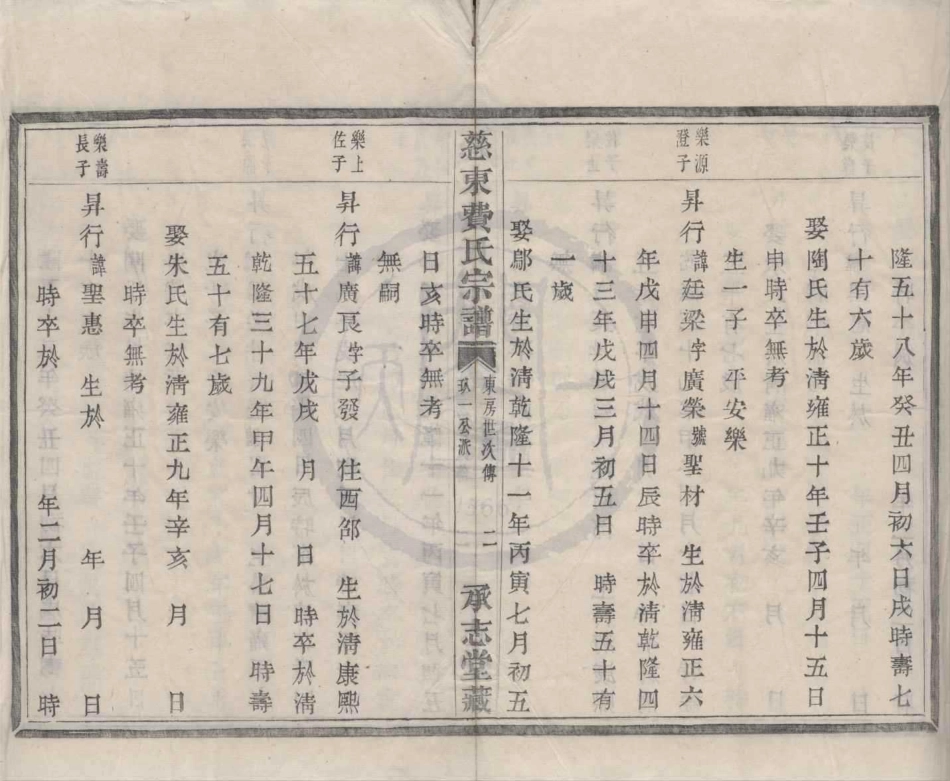 隆五十八年癸丑四月初六日戌時壽七
十有六歲
娶陶氏生於清雍正十年壬子四月十五日
申時卒無考
生一子 平安樂
樂源
澄子
昇行諱廷梁字廣榮號聖材 生於清雍正六
年戊申四月十四日辰時卒於清乾隆四
十三年戊戌三月初五日 時壽五十有
一歲
娶鄔氏生於清乾隆十一年丙寅七月初五
慈東費氏宗譜
東房世次傳
玖一公派
二
承志堂藏
日亥時卒無考
無嗣
樂上
佐子
昇行諱廣良字子發 住西郃 生於清康熙
五十七年戊戌 月 日 時卒於清
乾隆三十九年甲午四月十七日 時壽
五十有七歲
娶朱氏生於清雍正九年辛亥 月 日
時卒無考
樂壽
長子
昇行諱聖惠 生於 年 月 日
時卒於 年二月初二日 時